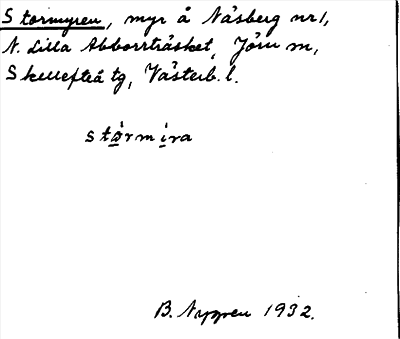 Stormyren, myr å Näsberg nr 1,
N. Lilla Abborrträsket, Jörn sn,
Skellefteå tg, Västerb. l.
stårmira
B. Nygren 1932.